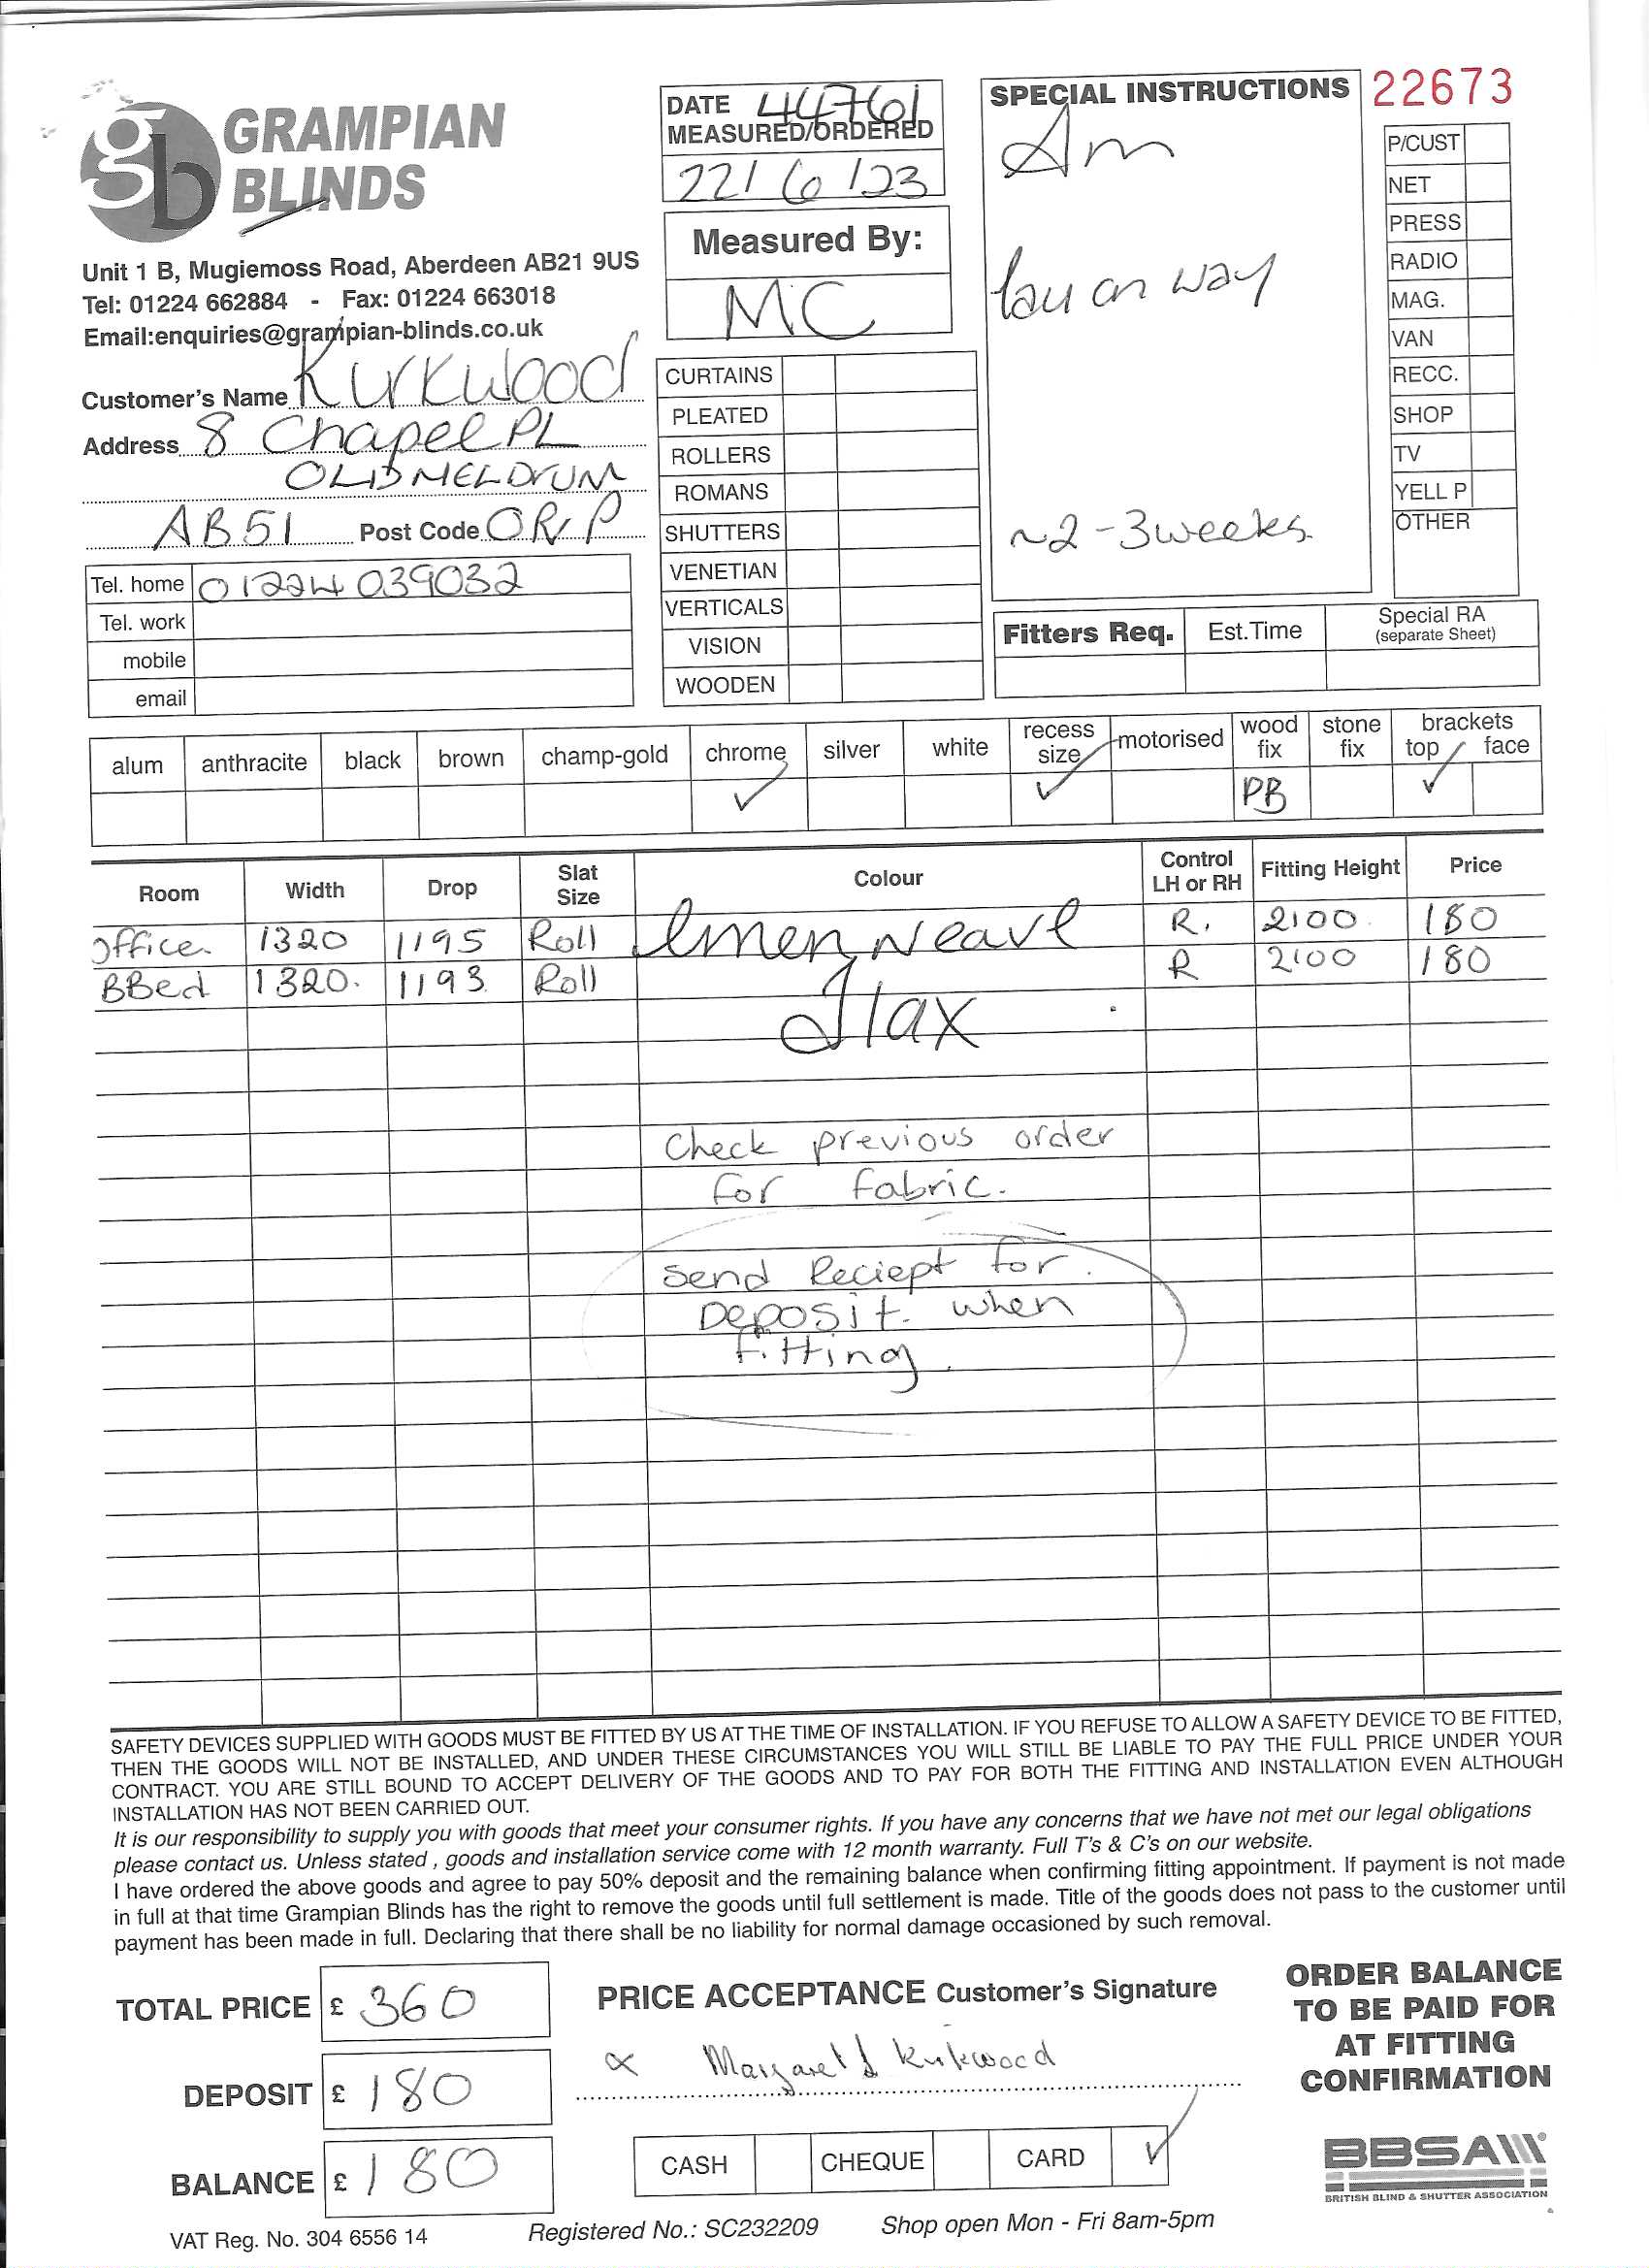 gb GRAMPIAN BLINDS
Unit 1 B, Mugiemoss Road, Aberdeen AB21 9US
Tel: 01224 662884 - Fax: 01224 663018
Email:enquiries@grampian-blinds.co.uk
Customer's Name Kirkwood
Address 8 Chapel PL
OLDMELDrUM
AB51 Post Code ORP
Tel. home 01224 039032
Tel. work
mobile
email
DATE 44761
MEASURED/ORDERED
22/6/23
Measured By:
MC
CURTAINS
PLEATED
ROLLERS
ROMANS
SHUTTERS
VENETIAN
VERTICALS
VISION
WOODEN
SPECIAL INSTRUCTIONS
Am
on way
~2-3 weeks.
22673
P/CUST
NET
PRESS
RADIO
MAG.
VAN
RECC.
SHOP
TV
YELL P
OTHER
Fitters Req. Est.Time Special RA (separate Sheet)
alum anthracite black brown champ-gold chrome silver white recess size motorised wood fix stone fix brackets top face
✓ ✓ PB ✓
Room Width Drop Slat Size Colour Control LH or RH Fitting Height Price
Office. 1320 1195 Roll weave R. 2100 180
BBed 1320. 1193 Roll R 2100 180
Flax
Check previous order
for fabric.
Send Reciept for
Deposit when
fitting.
SAFETY DEVICES SUPPLIED WITH GOODS MUST BE FITTED BY US AT THE TIME OF INSTALLATION. IF YOU REFUSE TO ALLOW A SAFETY DEVICE TO BE FITTED,
THEN THE GOODS WILL NOT BE INSTALLED, AND UNDER THESE CIRCUMSTANCES YOU WILL STILL BE LIABLE TO PAY THE FULL PRICE UNDER YOUR
CONTRACT. YOU ARE STILL BOUND TO ACCEPT DELIVERY OF THE GOODS AND TO PAY FOR BOTH THE FITTING AND INSTALLATION EVEN ALTHOUGH
INSTALLATION HAS NOT BEEN CARRIED OUT.
It is our responsibility to supply you with goods that meet your consumer rights. If you have any concerns that we have not met our legal obligations
please contact us. Unless stated , goods and installation service come with 12 month warranty. Full T's & C's on our website.
I have ordered the above goods and agree to pay 50% deposit and the remaining balance when confirming fitting appointment. If payment is not made
in full at that time Grampian Blinds has the right to remove the goods until full settlement is made. Title of the goods does not pass to the customer until
payment has been made in full. Declaring that there shall be no liability for normal damage occasioned by such removal.
TOTAL PRICE £ 360
DEPOSIT £ 180
BALANCE £ 180
PRICE ACCEPTANCE Customer's Signature
x Margaret J Kirkwood
CASH CHEQUE CARD ✓
ORDER BALANCE
TO BE PAID FOR
AT FITTING
CONFIRMATION
BBSA
BRITISH BLIND & SHUTTER ASSOCIATION
VAT Reg. No. 304 6556 14 Registered No.: SC232209 Shop open Mon - Fri 8am-5pm